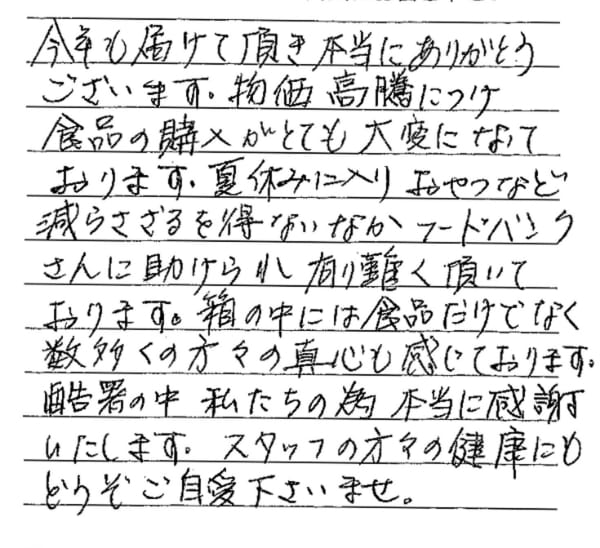 今年も届けて頂き本当にありがとう
ございます。物価高騰につけ
食品の購入がとても大変になって
おります。夏休みに入りおやつなど
減らさざるを得ないなかフードバンク
さんに助けられ有り難く頂いて
おります。箱の中には食品だけでなく
数多くの方々の真心も感じております。
酷暑の中私たちの為本当に感謝
いたします。スタッフの方々の健康にも
どうぞご自愛下さいませ。